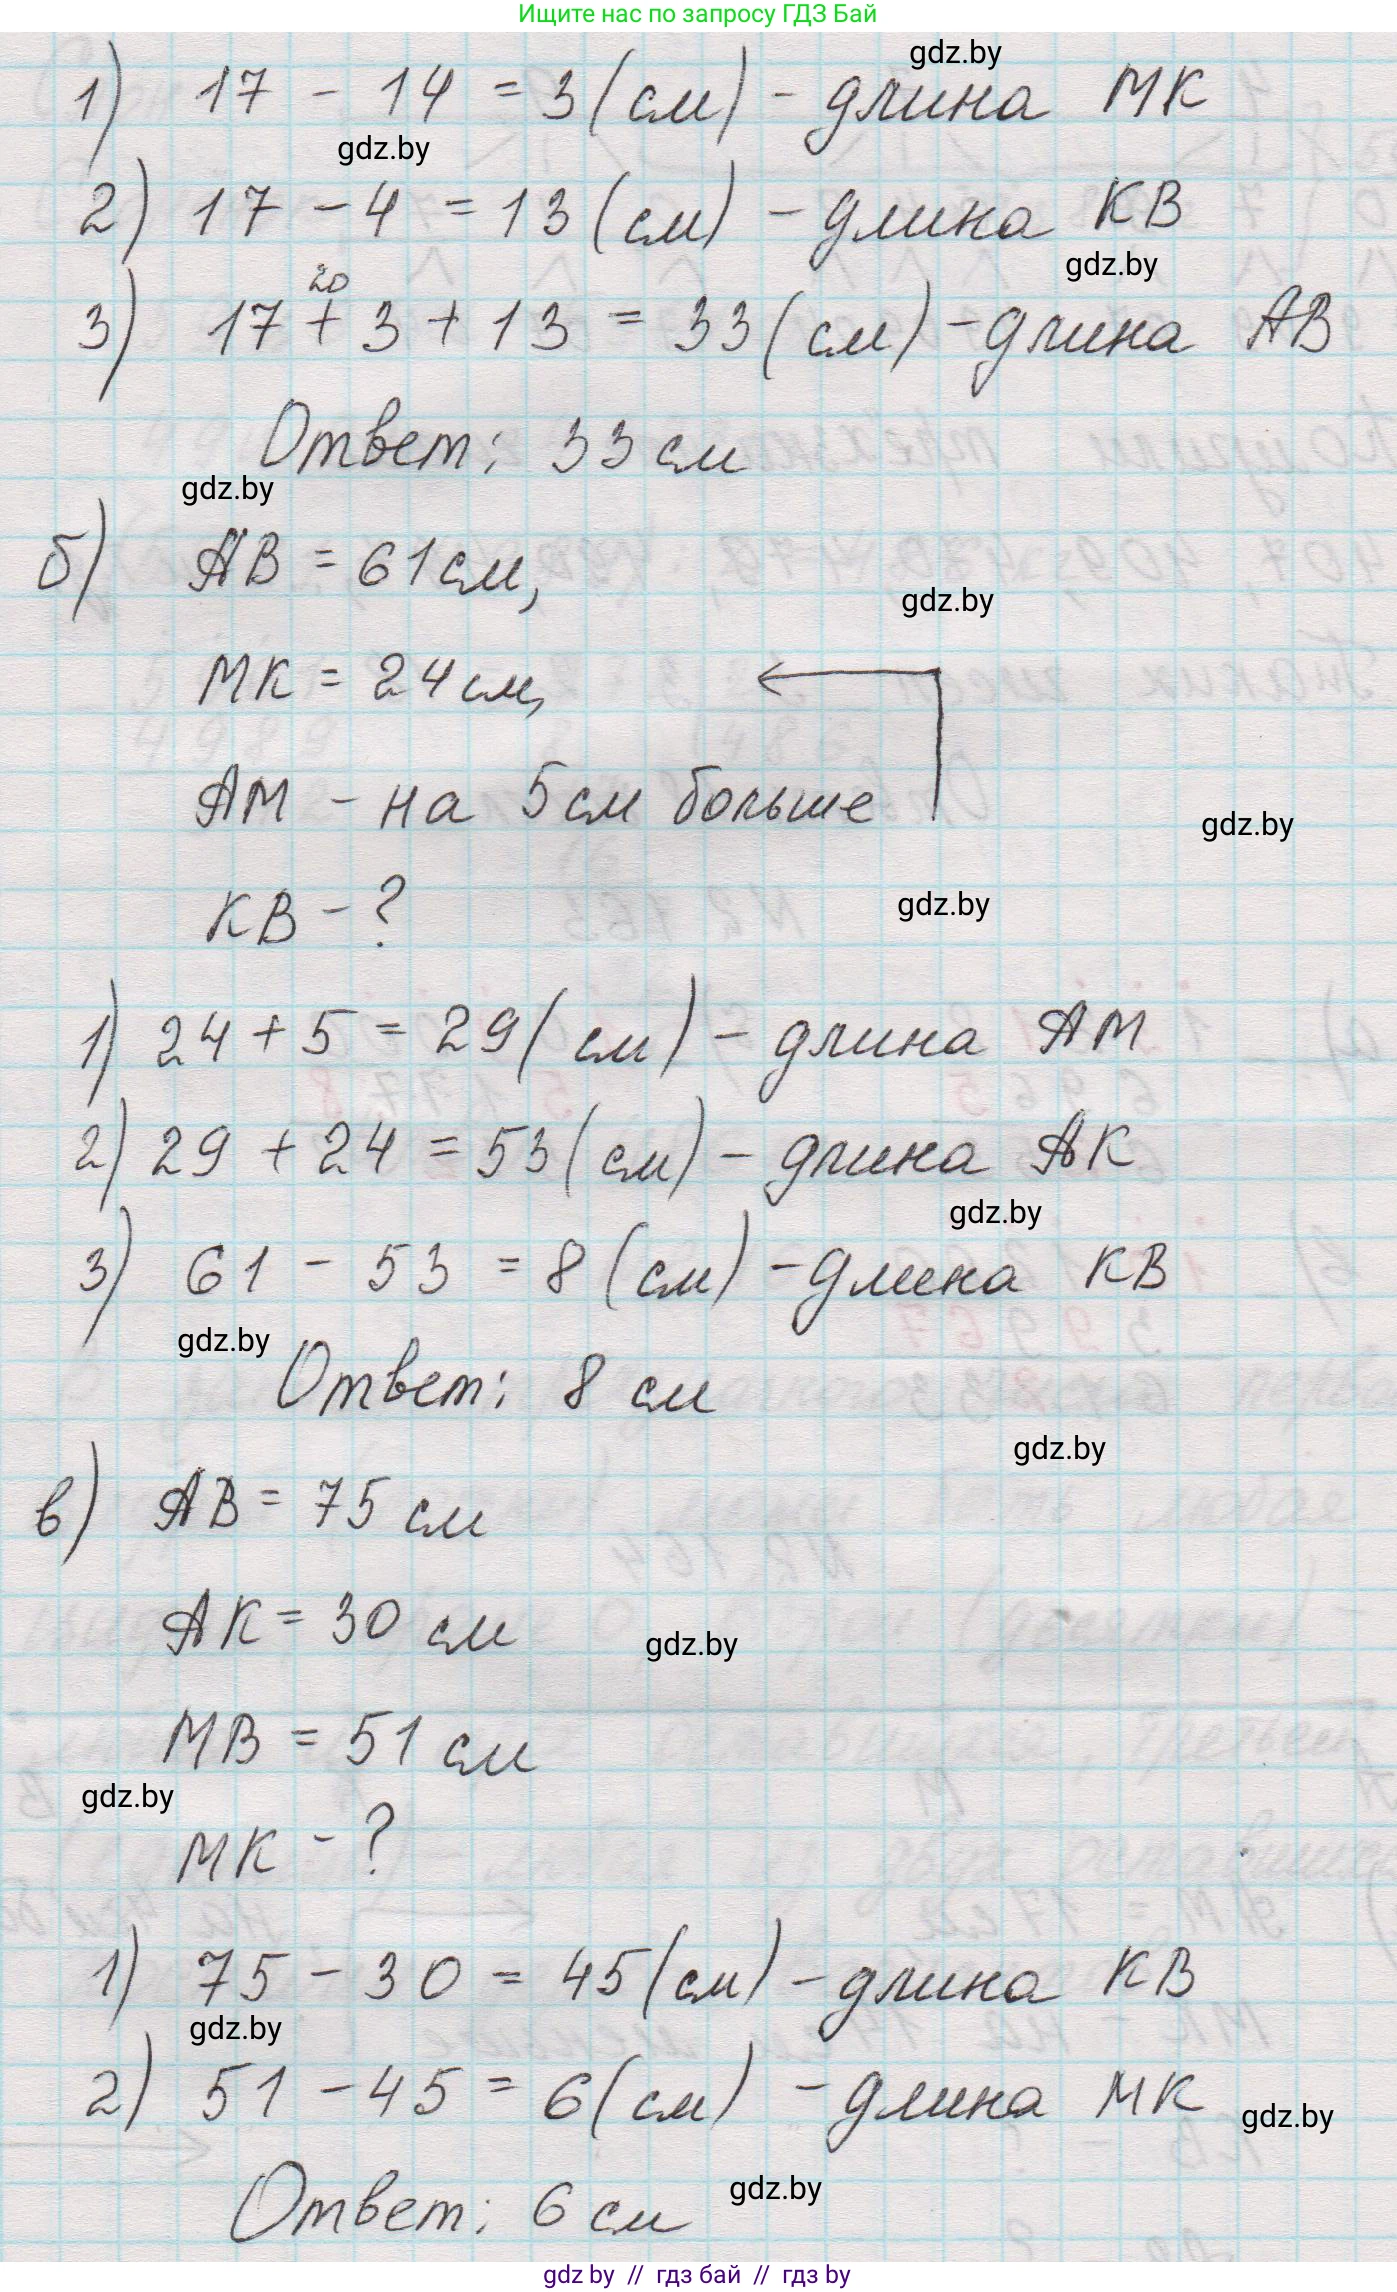 Ищите нас по запросу ГДЗ Бай
gdz.by
1) 17 - 14 = 3 (см) - длина МК
gdz.by
2) 17 - 4 = 13 (см) - длина КВ
gdz.by
20
3) 17 + 3 + 13 = 33 (см) - длина АВ
Ответ: 33 см
gdz.by
б) АВ = 61 см,
gdz.by
МК = 24 см,
АМ - на 5 см больше
gdz.by
КВ - ?
gdz.by
1) 24 + 5 = 29 (см) - длина АМ
2) 29 + 24 = 53 (см) - длина АК
gdz.by
3) 61 - 53 = 8 (см) - длина КВ
gdz.by
Ответ: 8 см
gdz.by
в) АВ = 75 см
АК = 30 см
gdz.by
МВ = 51 см
gdz.by
МК - ?
1) 75 - 30 = 45 (см) - длина КВ
gdz.by
2) 51 - 45 = 6 (см) - длина МК
gdz.by
gdz.by
Ответ: 6 см
gdz by // гдз бай // гдз by